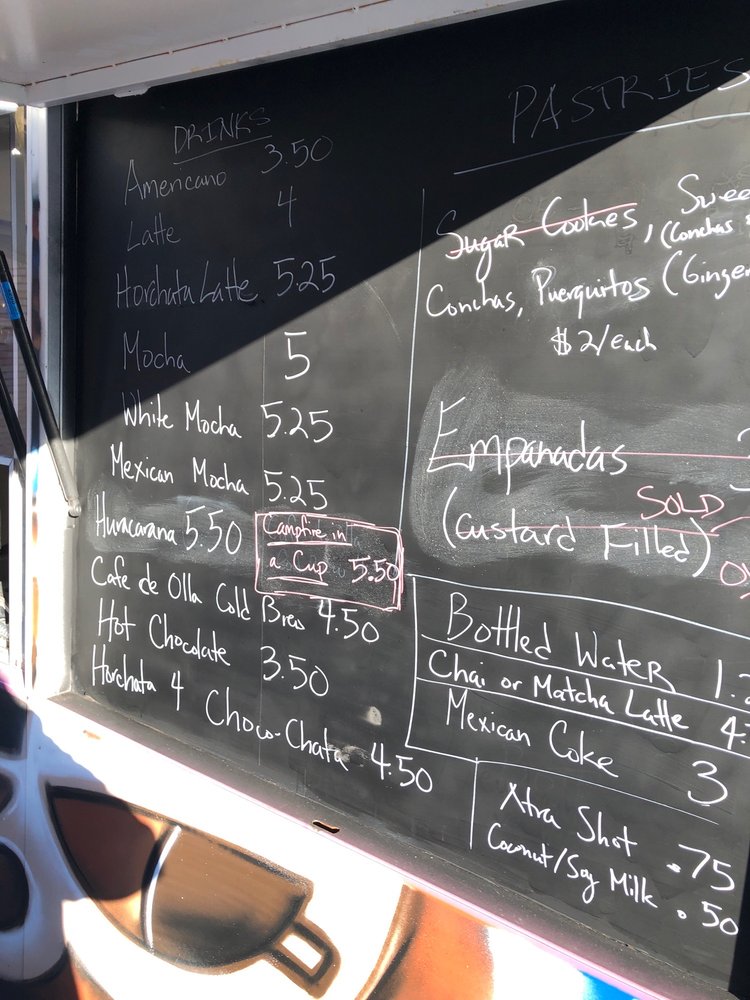 DRINKS
Americano 3.50
Latte 4
Horchata Latte 5.25
Mocha 5
White Mocha 5.25
Mexican Mocha 5.25
Huracarana 5.50
Campfire in
a Cup 5.50
Cafe de Olla Cold Brew 4.50
Hot Chocolate 3.50
Horchata 4
Choco-Chata 4.50
PASTRIES
Sugar Cookies,
(Conchas
Conchas, Puerquitos
$2/each
Empanadas
SOLD
(Custard Filled)
Bottled Water
Chai or Matcha Latte
Mexican Coke 3
Xtra Shot .75
Coconut/Soy Milk .50